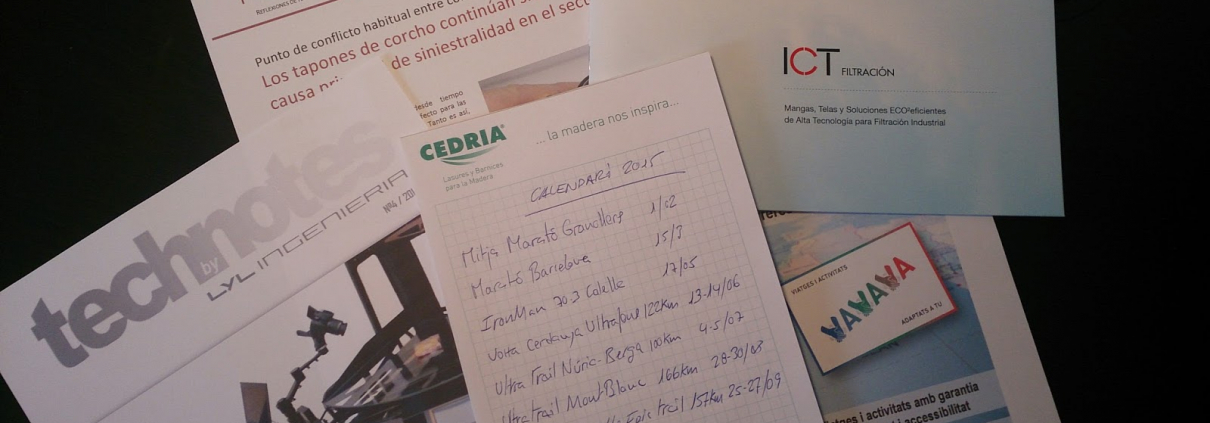 Punto de conflicto habitual entre
Los tapones de corcho continúan
causa
de siniestralidad en el
desde tiempo
para las
Tanto es así,
ICT FILTRACIÓN
Mangas, Telas y Soluciones ECO²eficientes
de Alta Tecnología para Filtración Industrial
technotes
by LYL INGENIERIA
Nº4 /
CEDRIA®
Lasures y Barnices
para la Madera
... la madera nos inspira...
CALENDARI 2015
Mitja Marató Granollers 1/02
Marató Barcelona 15/3
IronMan 70.3 Calella 17/05
Volta Cerdanya Ultrafons 122km 13-14/06
Ultra Trail Núria-Berga 100km 4-5/07
Ultra trail MontBlanc 166km 28-30/08
trail 157km 25-27/09
VIATGES I ACTIVITATS
VAVAVA
ADAPTATS A TU
i activitats amb garantia
accessibilitat